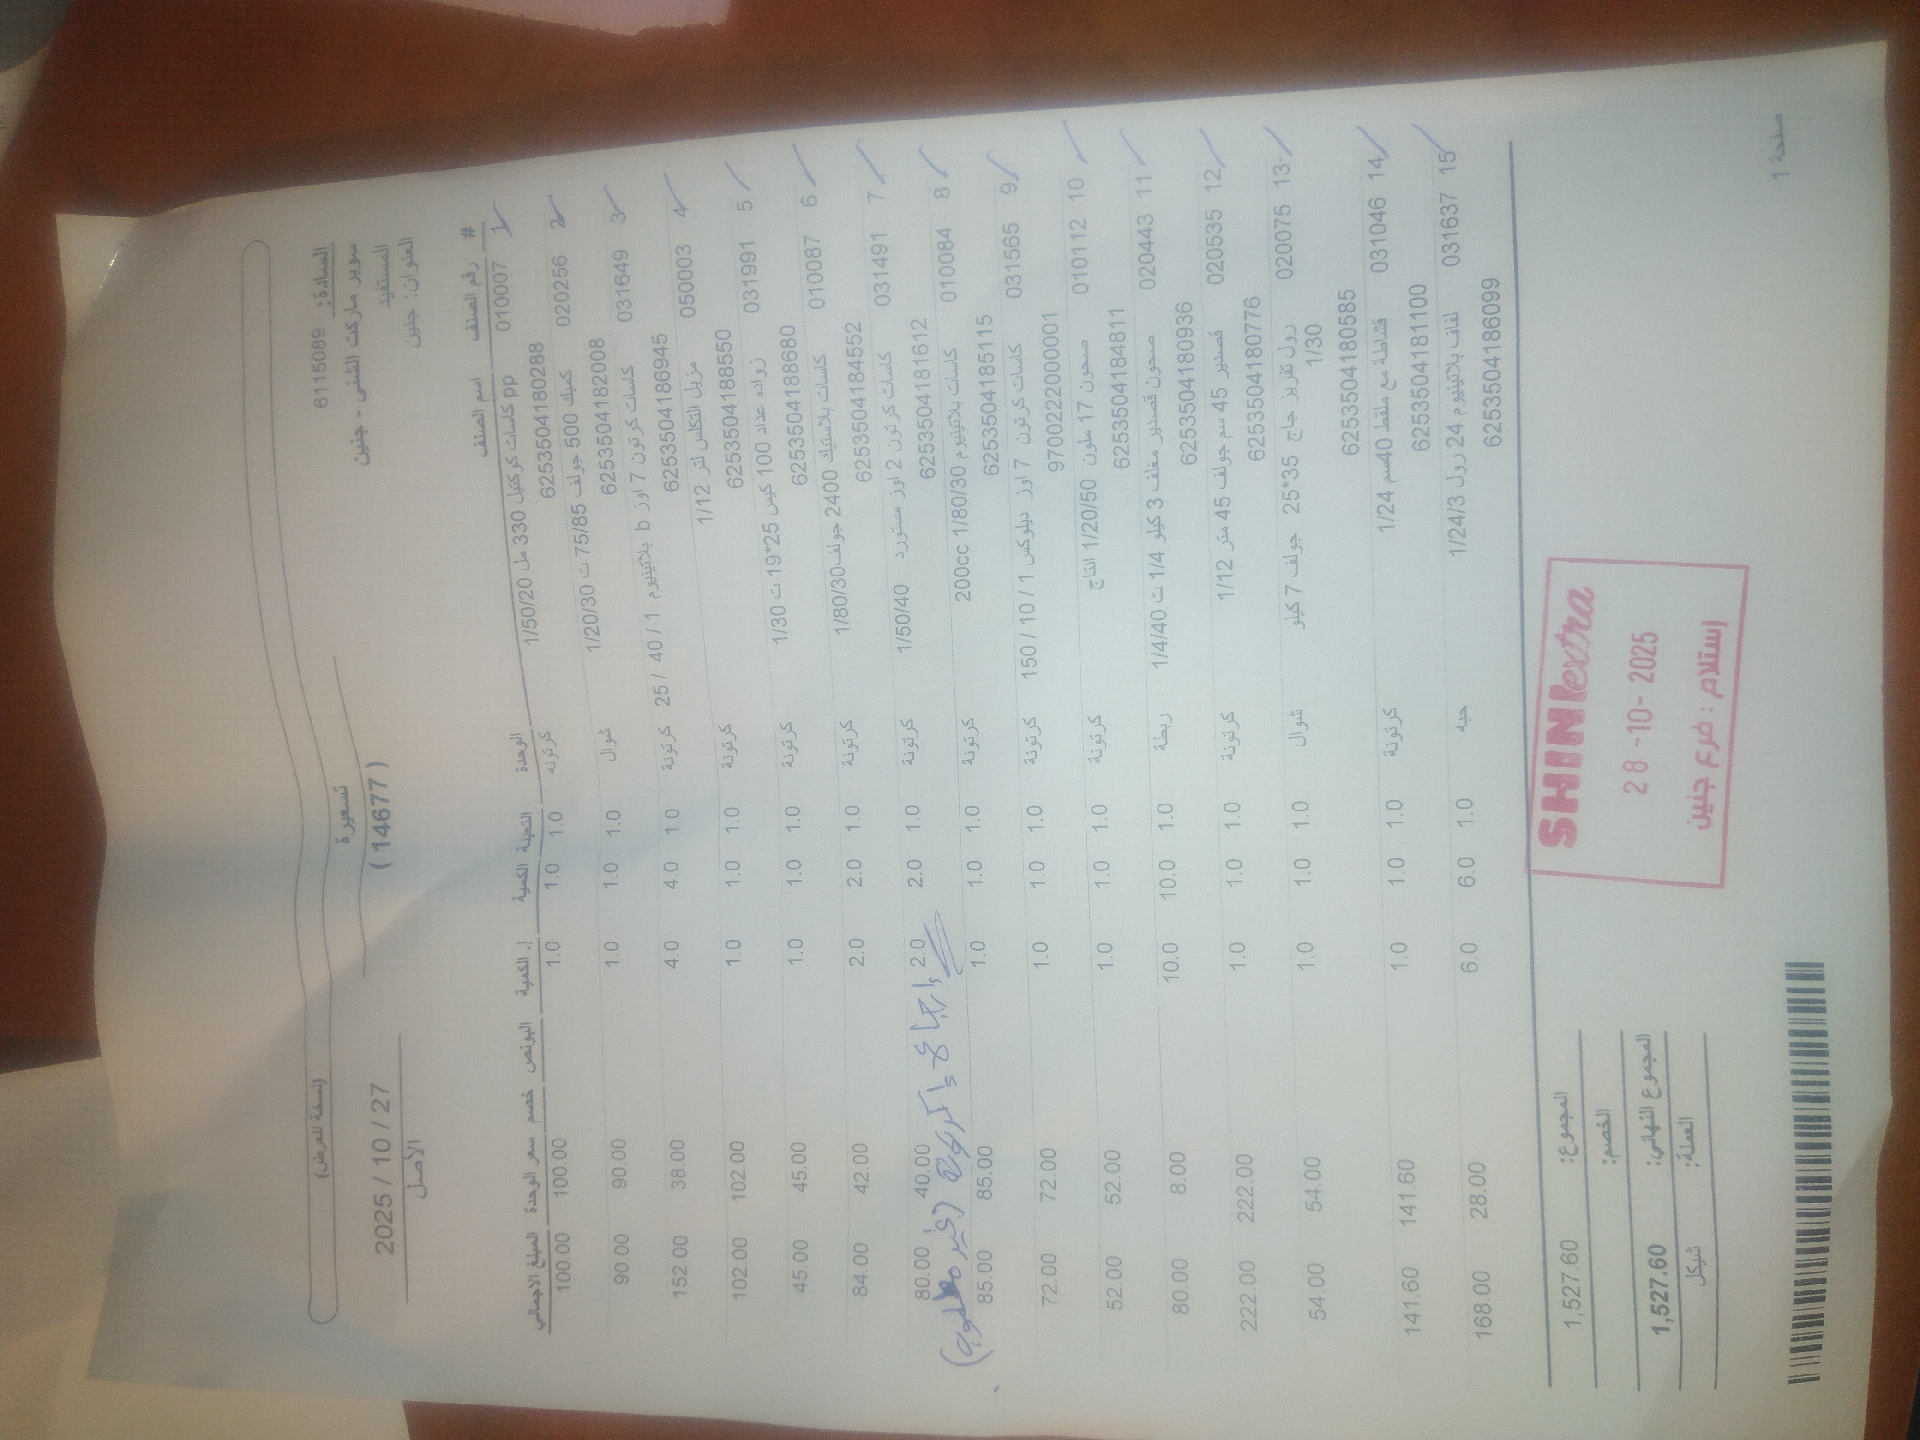 (نسخة للعرض)
السادة: 6115089
سوبر ماركت الشني - جنين
المستفيد
العنوان: جنين
تسعيرة
( 14677 )
2025 / 10 / 27
الأصل
# رقم الصنف اسم الصنف الوحدة التعبئة الكمية إ. الكمية البونص خصم سعر الوحدة المبلغ الاجمالي
1 010007 كاسات كوكتيل 330 مل pp 1/50/20 كرتونه 1.0 1.0 1.0 100.00 100.00
6253504180288
2 020256 كمبك 500 جولف 75/85 ت 1/20/30 شوال 1.0 1.0 1.0 90.00 90.00
6253504182008
3 031649 كاسات كرتون 7 اوز b بلاتينيوم 1 / 40 / 25 كرتونة 1.0 4.0 4.0 38.00 152.00
6253504186945
4 050003 مزيل التكلس لتر 1/12 كرتونة 1.0 1.0 1.0 102.00 102.00
6253504188550
5 031991 زواده عداد 100 كيس 25*19 ت 1/30 كرتونة 1.0 1.0 1.0 45.00 45.00
6253504188680
6 010087 كاسات بلاستيك 2400 جولف 1/80/30 كرتونة 1.0 2.0 2.0 42.00 84.00
6253504184552
7 031491 كاسات كرتون 2 اوز مستورد 1/50/40 كرتونة 1.0 2.0 2.0 40.00 80.00
6253504181612
إرجاع كرتونة (غير مطلوب)
8 010084 كاسات بلاتينيوم 200cc 1/80/30 كرتونة 1.0 1.0 1.0 85.00 85.00
6253504185115
9 031565 كاسات كرتون 7 اوز ديلوكس 1 / 10 / 150 كرتونة 1.0 1.0 1.0 72.00 72.00
9700222000001
10 010112 صحون 17 ملون 1/20/50 انتاج كرتونة 1.0 1.0 1.0 52.00 52.00
6253504184811
11 020443 صحون قصدير مغلف 3 كيلو 1/4 ت 1/4/40 ربطة 1.0 10.0 10.0 8.00 80.00
6253504180936
12 020535 قصدير 45 سم جولف 45 متر 1/12 كرتونة 1.0 1.0 1.0 222.00 222.00
6253504180776
13 020075 رول تفريز جاج 35*25 جولف 7 كيلو شوال 1.0 1.0 1.0 54.00 54.00
1/30
6253504180585
14 031046 قشاطة مع ملقط 40سم 1/24 كرتونة 1.0 1.0 1.0 141.60 141.60
6253504181100
15 031637 لفاف بلاتينيوم 24 رول 1/24/3 حبه 1.0 6.0 6.0 28.00 168.00
6253504186099
المجموع: 1,527.60
الخصم:
المجموع النهائي: 1,527.60
العملة: شيكل
SHINI extra
28-10-2025
إستلام : فرع جنين
صفحة 1